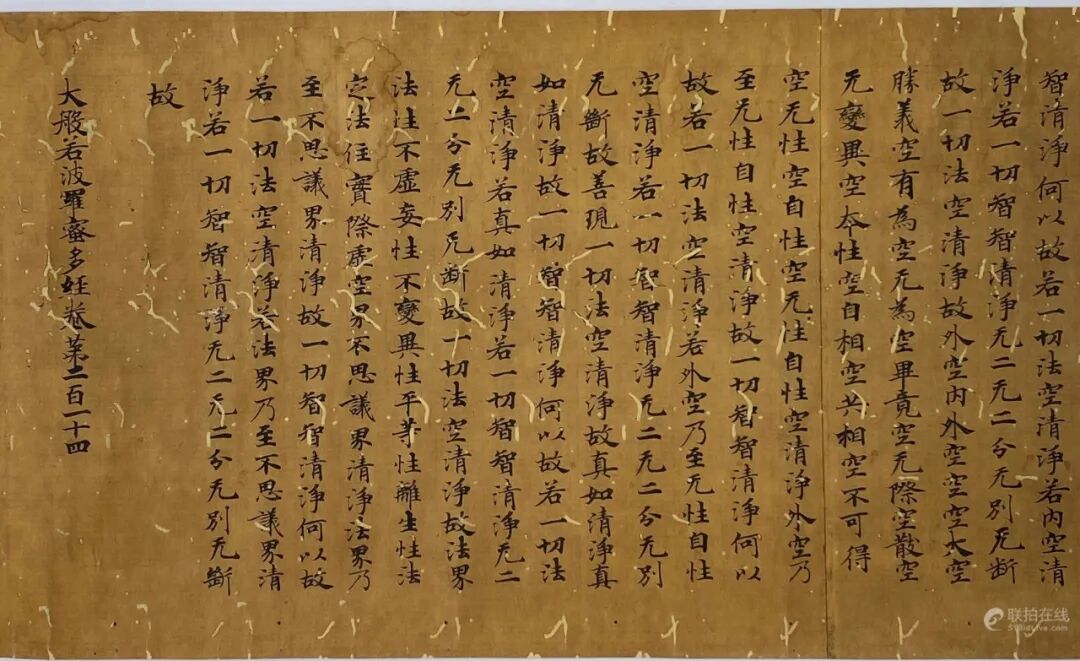 智清淨何以故若一切法空清淨若內空清
淨若一切智智清淨无二无二分无別无斷
故一切法空清淨故外空內外空空空大空
勝義空有為空无為空畢竟空无際空散空
无變異空本性空自相空共相空不可得
空无性空自性空无性自性空清淨外空乃
至无性自性空清淨故一切智智清淨何以
故若一切法空清淨若外空乃至无性自性
空清淨若一切智智清淨无二无二分无別
无斷故善現一切法空清淨故真如清淨真
如清淨故一切智智清淨何以故若一切法
空清淨若真如清淨若一切智智清淨无二
无二分无別无斷故一切法空清淨故法界
法性不虛妄性不變異性平等性離生性法
定法住實際虛空界不思議界清淨法界乃
至不思議界清淨故一切智智清淨何以故
若一切法空清淨若法界乃至不思議界清
淨若一切智智清淨无二无二分无別无斷
故
大般若波羅蜜多經卷第二百一十四
联拍在线
51bidlive.com